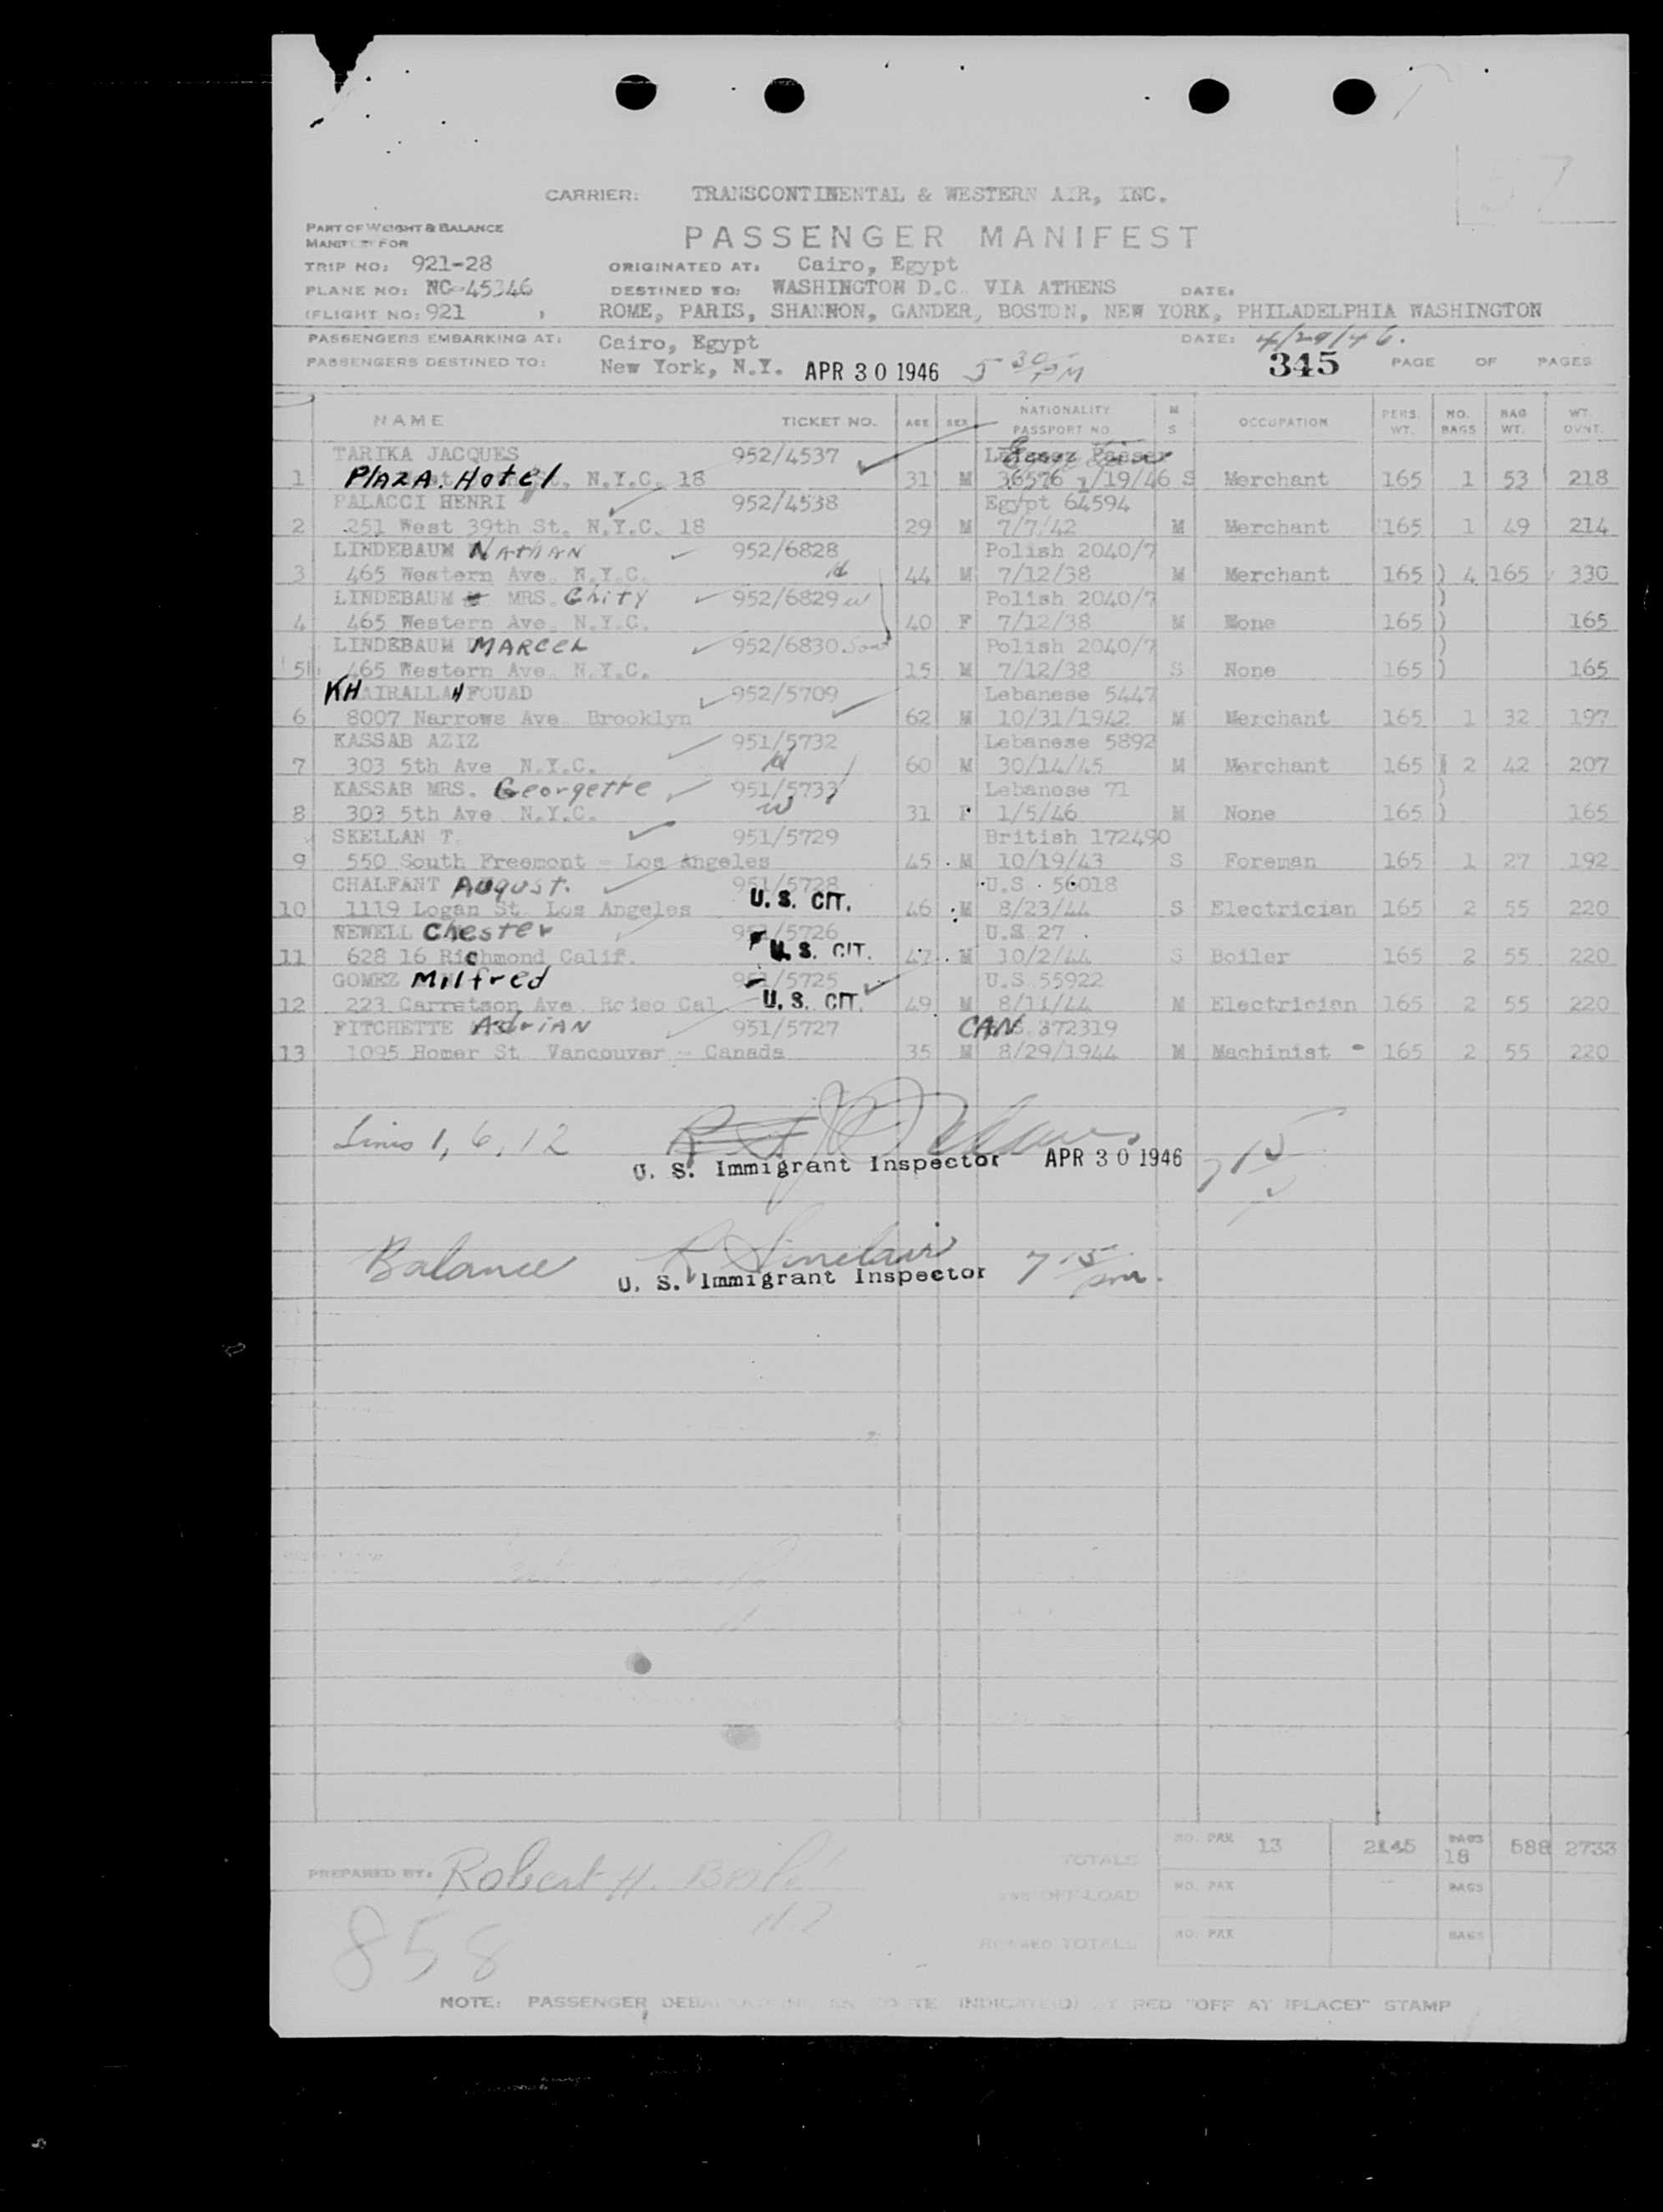 CARRIER: TRANSCONTINENTAL & WESTERN AIR, INC.
PART OF WEIGHT & BALANCE
MANIFEST FOR
PASSENGER MANIFEST
TRIP NO: 921-28 ORIGINATED AT: Cairo, Egypt
PLANE NO: NC-45346 DESTINED TO: WASHINGTON D.C. VIA ATHENS DATE:
(FLIGHT NO: 921 ) ROME, PARIS, SHANNON, GANDER, BOSTON, NEW YORK, PHILADELPHIA WASHINGTON
PASSENGERS EMBARKING AT: Cairo, Egypt DATE: 4/29/46.
PASSENGERS DESTINED TO: New York, N.Y. APR 30 1946 5 30 PM 345 PAGE OF PAGES
NAME TICKET NO. AGE SEX NATIONALITY PASSPORT NO. M S OCCUPATION PERS. WT. NO. BAGS BAG WT. WT. OVNT.
TARIKA JACQUES 952/4537 Passer
1 PLAZA. Hotel, N.Y.C. 18 31 M 36576 1/19/46 S Merchant 165 1 53 218
PALACCI HENRI 952/4538 Egypt 64594
2 251 West 39th St. N.Y.C. 18 29 M 7/7/42 M Merchant 165 1 49 214
LINDEBAUM NATHAN 952/6828 Polish 2040/7
3 465 Western Ave. N.Y.C. H 44 M 7/12/38 M Merchant 165 ) 4 165 330
LINDEBAUM MRS. Chity 952/6829 w Polish 2040/7 )
4 465 Western Ave. N.Y.C. 40 F 7/12/38 M None 165 ) 165
LINDEBAUM MARCEL 952/6830 Son Polish 2040/7 )
5 465 Western Ave. N.Y.C. 15 M 7/12/38 S None 165 ) 165
KHAIRALLAH FOUAD 952/5709 Lebanese 5447
6 8007 Narrows Ave. Brooklyn 62 M 10/31/1942 M Merchant 165 1 32 197
KASSAB AZIZ 951/5732 Lebanese 5892
7 303 5th Ave N.Y.C. H 60 M 30/14/45 M Merchant 165 2 42 207
KASSAB MRS. Georgette 951/5733 Lebanese 71 )
8 303 5th Ave N.Y.C. w 31 F 1/5/46 M None 165 ) 165
SKELLAN T. 951/5729 British 172490
9 550 South Freemont - Los Angeles 45 M 10/19/43 S Foreman 165 1 27 192
CHALFANT August. 951/5728 U.S. 56018
10 1119 Logan St. Los Angeles U. S. CIT. 46 M 8/23/44 S Electrician 165 2 55 220
NEWELL Chester 951/5726 U.S 27
11 628 16 Richmond Calif. U. S. CIT. 47 M 10/2/44 S Boiler 165 2 55 220
GOMEZ Milfred 951/5725 U.S 55922
12 223 Garretson Ave. Rodeo Cal U. S. CIT. 49 M 8/11/44 M Electrician 165 2 55 220
FITCHETTE AdriAN 951/5727 CAN. 372319
13 1095 Homer St Vancouver - Canada 35 M 8/29/1944 M Machinist - 165 2 55 220
Lines 1, 6, 12
U. S. Immigrant Inspector APR 30 1946 7 15
Balance R Sinclair 7 15 pm.
U. S. Immigrant Inspector
TOTALS NO. PAX 13 2145 BAGS 18 588 2733
PREPARED BY: Robert H.
OFF-LOAD NO. PAX BAGS
TOTALS NO. PAX BAGS
858
NOTE: PASSENGER INDICATED RED "OFF AT (PLACE)" STAMP